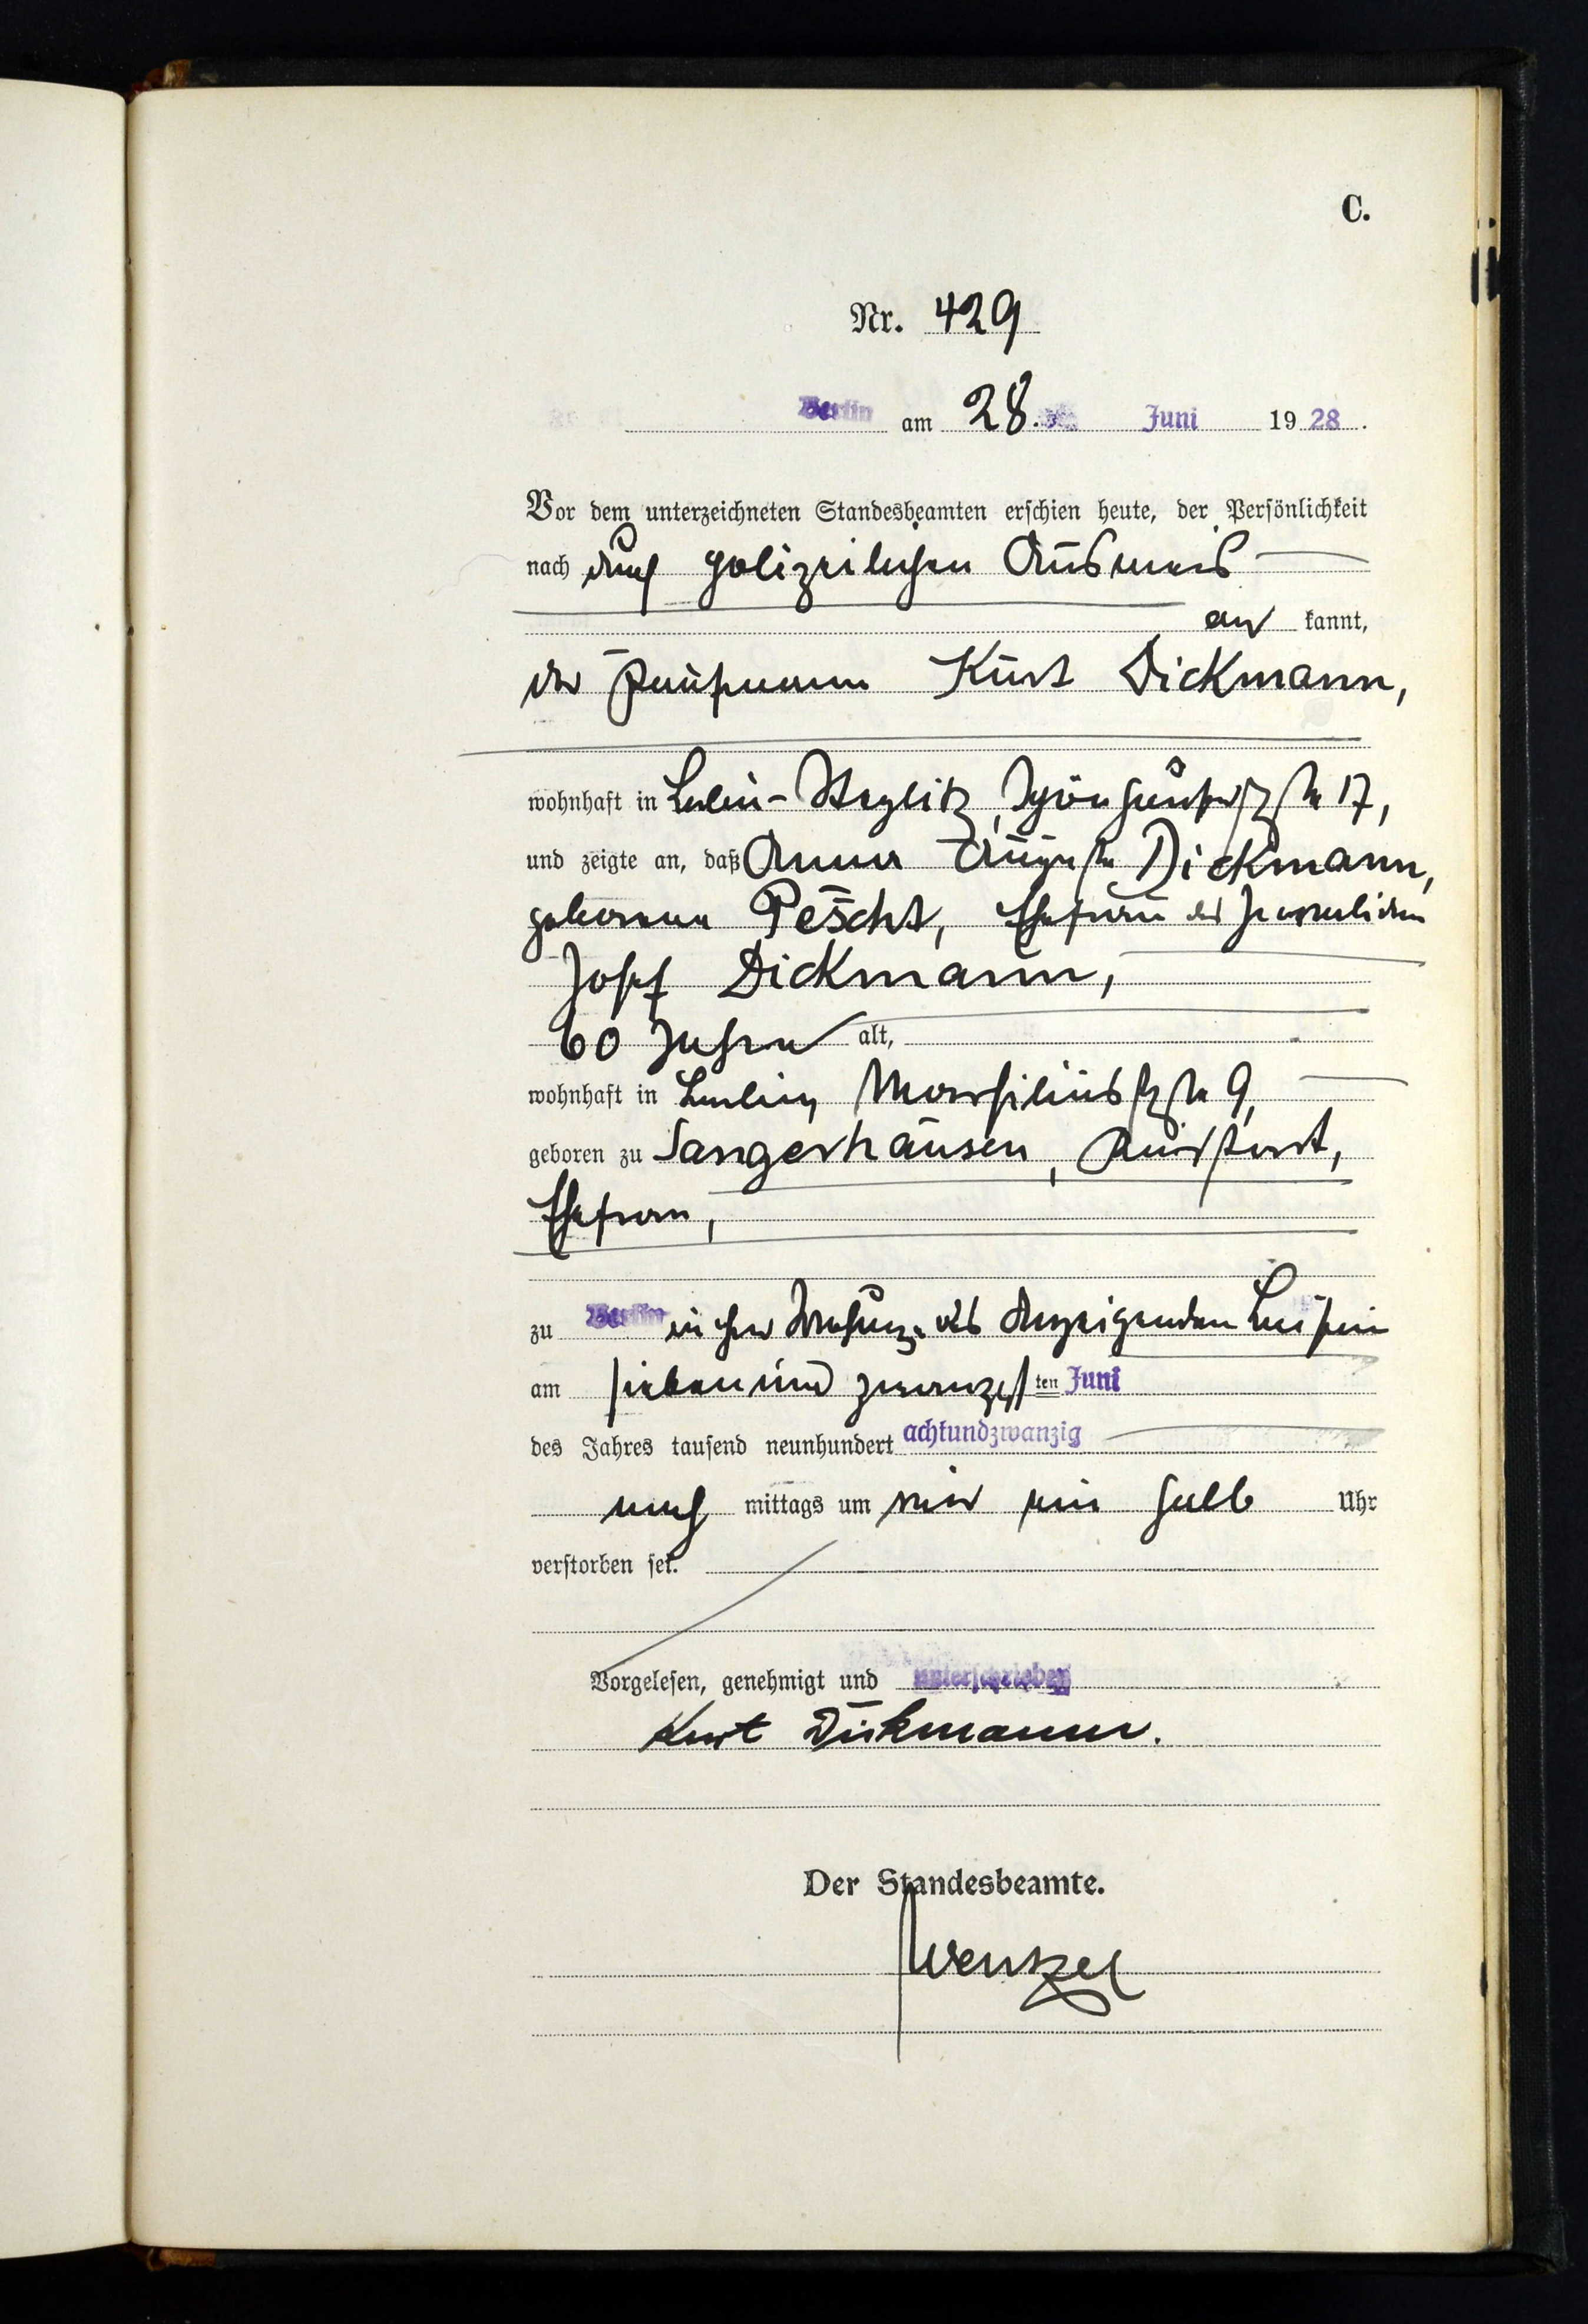 C.
Nr. 429
Berlin am 28. Juni 1928.
Vor dem unterzeichneten Standesbeamten erschien heute, der Persönlichkeit
nach durch polizeilichen Ausweis
anerkannt,
der Kaufmann Kurt Dickmann,
wohnhaft in Berlin-Steglitz, Schönhauserstraße 17,
und zeigte an, daß Anna Auguste Dickmann,
geborene Pescht, Ehefrau des Invaliden
Josef Dickmann,
60 Jahre alt,
wohnhaft in Berlin, Marsiliusstraße 9,
geboren zu Sangerhausen,
Ehefrau,
zu Berlin in der Wohnung des Anzeigenden
am siebenundzwanzigsten Juni
des Jahres tausend neunhundert achtundzwanzig
nachmittags um vier ein halb Uhr
verstorben sei.
Vorgelesen, genehmigt und unterschrieben
Kurt Dickmann.
Der Standesbeamte.
Wenzel